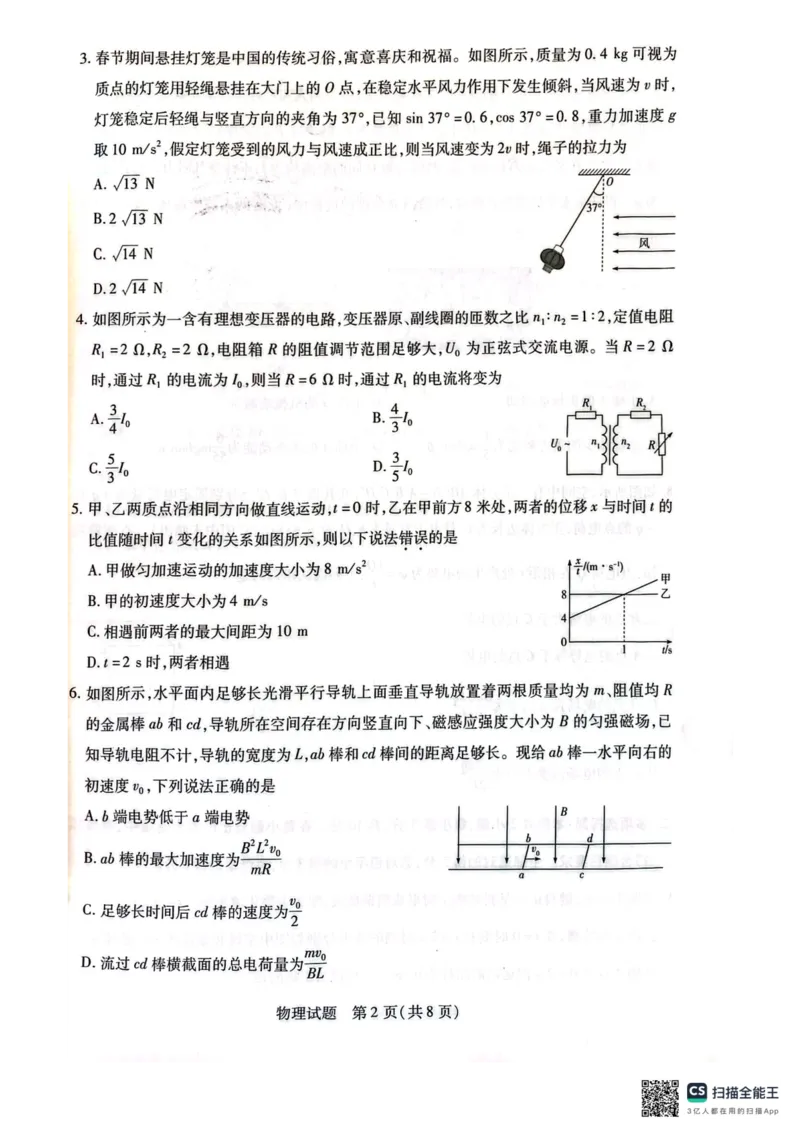 3. 春节期间悬挂灯笼是中国的传统习俗,寓意喜庆和祝福。如图所示,质量为 0.4 kg 可视为
质点的灯笼用轻绳悬挂在大门上的 O 点,在稳定水平风力作用下发生倾斜,当风速为 v 时,
灯笼稳定后轻绳与竖直方向的夹角为 37°,已知 sin 37° =0.6,cos 37° =0.8,重力加速度 g
取 10 m/s²,假定灯笼受到的风力与风速成正比,则当风速变为 2v 时,绳子的拉力为
A. √13 N
B. 2√13 N
C. √14 N
D. 2√14 N
O
37°
风
4. 如图所示为一含有理想变压器的电路,变压器原、副线圈的匝数之比 n₁∶n₂ =1∶2,定值电阻
R₁ =2 Ω,R₂ =2 Ω,电阻箱 R 的阻值调节范围足够大,U₀ 为正弦式交流电源。当 R =2 Ω
时,通过 R₁ 的电流为 I₀,则当 R =6 Ω 时,通过 R₁ 的电流将变为
A. 3/4 I₀ B. 4/3 I₀
C. 5/3 I₀ D. 3/5 I₀
R₁ R₂
U₀ n₁ n₂ R
5. 甲、乙两质点沿相同方向做直线运动,t =0 时,乙在甲前方 8 米处,两者的位移 x 与时间 t 的
比值随时间 t 变化的关系如图所示,则以下说法错误的是
A. 甲做匀加速运动的加速度大小为 8 m/s²
B. 甲的初速度大小为 4 m/s
C. 相遇前两者的最大间距为 10 m
D. t =2 s 时,两者相遇
x/t /(m·s⁻¹)
甲
8 乙
4
0 1 t/s
6. 如图所示,水平面内足够长光滑平行导轨上面垂直导轨放置着两根质量均为 m、阻值均 R
的金属棒 ab 和 cd,导轨所在空间存在方向竖直向下、磁感应强度大小为 B 的匀强磁场,已
知导轨电阻不计,导轨的宽度为 L,ab 棒和 cd 棒间的距离足够长。现给 ab 棒一水平向右的
初速度 v₀,下列说法正确的是
A. b 端电势低于 a 端电势
B. ab 棒的最大加速度为 B²L²v₀/mR
C. 足够长时间后 cd 棒的速度为 v₀/2
D. 流过 cd 棒横截面的总电荷量为 mv₀/BL
B
b d
v₀
a c
物理试题 第 2 页(共 8 页)
CS 扫描全能王
3亿人都在用的扫描App